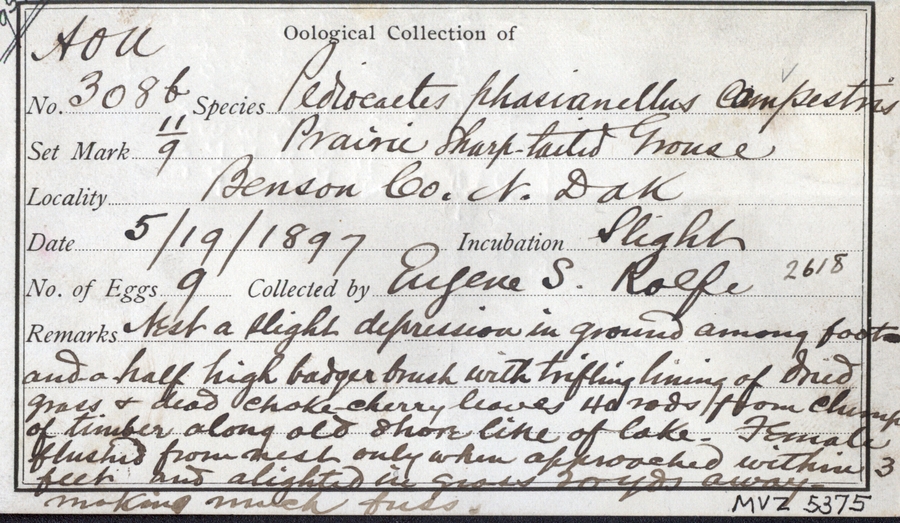 AOU
Oological Collection of
No. 308b Species Pediocaetes phasianellus campestris
Set Mark 11/9 Prairie Sharp-tailed Grouse
Locality Benson Co. N. Dak
Date 5/19/1897 Incubation Slight
No. of Eggs 9 Collected by Eugene S. Rolfe 2618
Remarks Nest a slight depression in ground among foot
and a half high badger brush with trifling lining of dried
grass & dead choke-cherry leaves 40 rods from clump
of timber along old shore like of lake. Female
flushed from nest only when approached within 3
feet and alighted in grass 30 yds away
making much fuss.
MVZ 5375